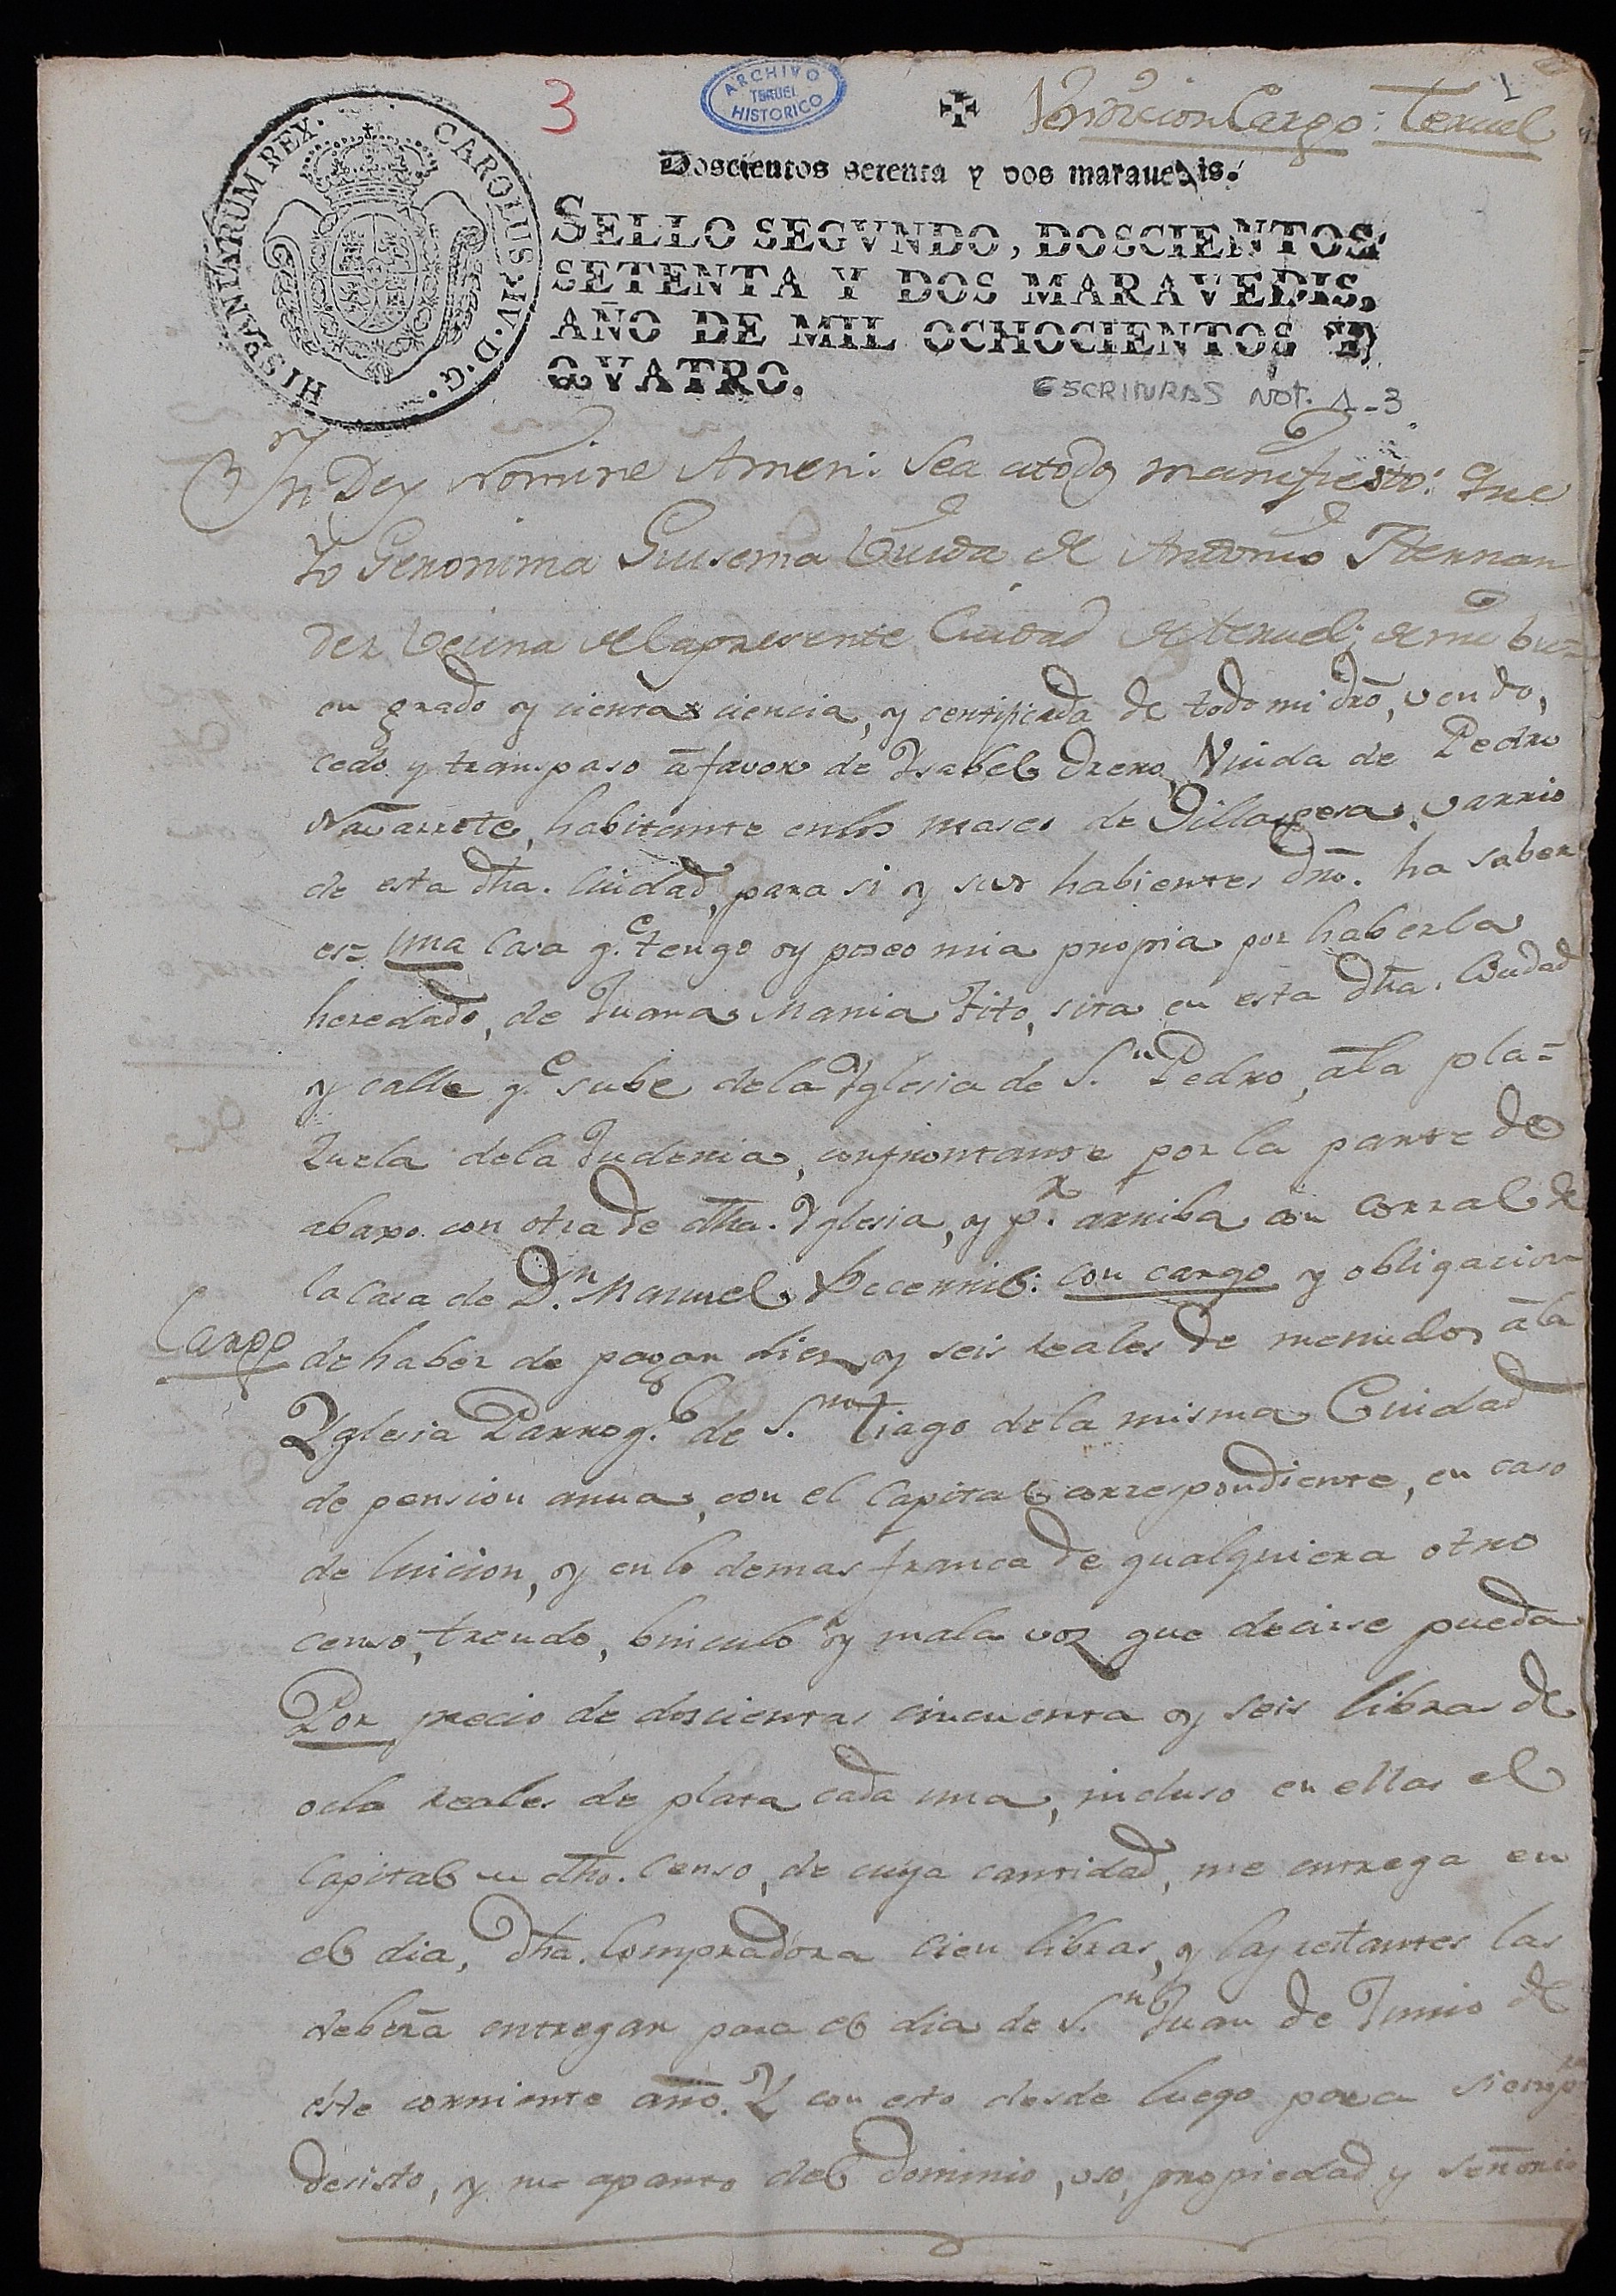 3
ARCHIVO
TERUEL
HISTORICO
Vendicion con Cargo: Teruel
1
HISPANIARUM REX. CAROLUS. IV. D. G.
Doscientos setenta y dos maravedis.
SELLO SEGVNDO, DOSCIENTOS
SETENTA Y DOS MARAVEDIS,
AÑO DE MIL OCHOCIENTOS Y
QVATRO.
ESCRITURAS NOT. 1-3
In Dey Nomine Amen: Sea atodos manifiesto: Que
Yo Geronima Guisema Viuda de Antonio Hernan
dez Vecina dela presente Ciudad de teruel; de mi bu=
en grado y cierta ciencia, y certificada de todo mi dro, vendo,
cedo y transpaso â favor de Ysabel Viuda de Pedro
Navarrete, habitante enlos mases de Villaspesa, varrio
de esta dha. Ciudad, para si y sus habientes dro. ha saber
es= una Casa q.e tengo y poseo mia propia por haberla
heredado, de Juana Maria Fito, sita en esta dha. Ciudad
y calle q.e sube dela Yglesia de S.n Pedro, âla pla=
zuela dela Juderia, confrontante por la parte de
abaxo con otra de dha. Yglesia, y p.r arriba con corral de
la Casa de D.n Manuel Becerril: con cargo y obligacion
Cargo
de haber de pagar diez y seis reales de menudos âla
Yglesia Parroq.l de S.n tiago dela misma Ciudad
de pension anua, con el Capital correspondiente, en caso
de luicion, y en lo demas franca de qualquiera otro
censo, treudo, binculo y mala voz que decirse pueda
Por precio de doscientas cincuenta y seis libras de
ocho reales de plata cada una, incluso en ellas el
Capital dho. Censo, de cuya cantidad, me entrega en
el dia, dha. Compradora cien libras, y las restantes las
deberâ entregar para el dia de S.n Juan de Junio de
éste corriente año. Y con esto desde luego para siemp.re
desisto, y me aparto del Dominio, uso, propiedad y señorio